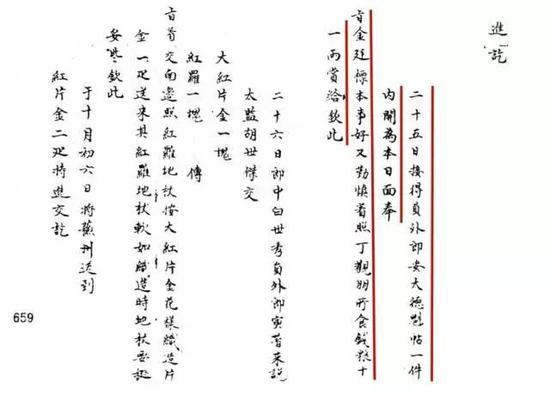 進訖
二十五日接得員外郎安大德魁帖一件
內開為本日面奉
旨金廷標本事好又勤慎着照丁觀鵬所食錢糧十
一兩賞給欽此
二十六日郎中白世秀員外郎寅著來說
太監胡世傑交
大紅片金一塊
紅羅一塊 傳
旨着交南邊照紅羅地杖按大紅片金花樣織造片
金一疋送來其紅羅地杖軟如織造時地杖要
欽此
于十月初六日將蘇州送到
紅片金二疋持進交訖
659